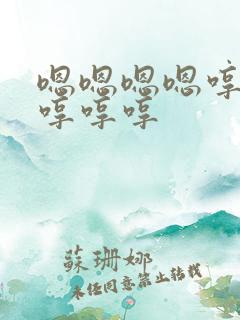 嗯嗯嗯嗯哼
哼哼哼
蘇珊娜
未经同意禁止转载